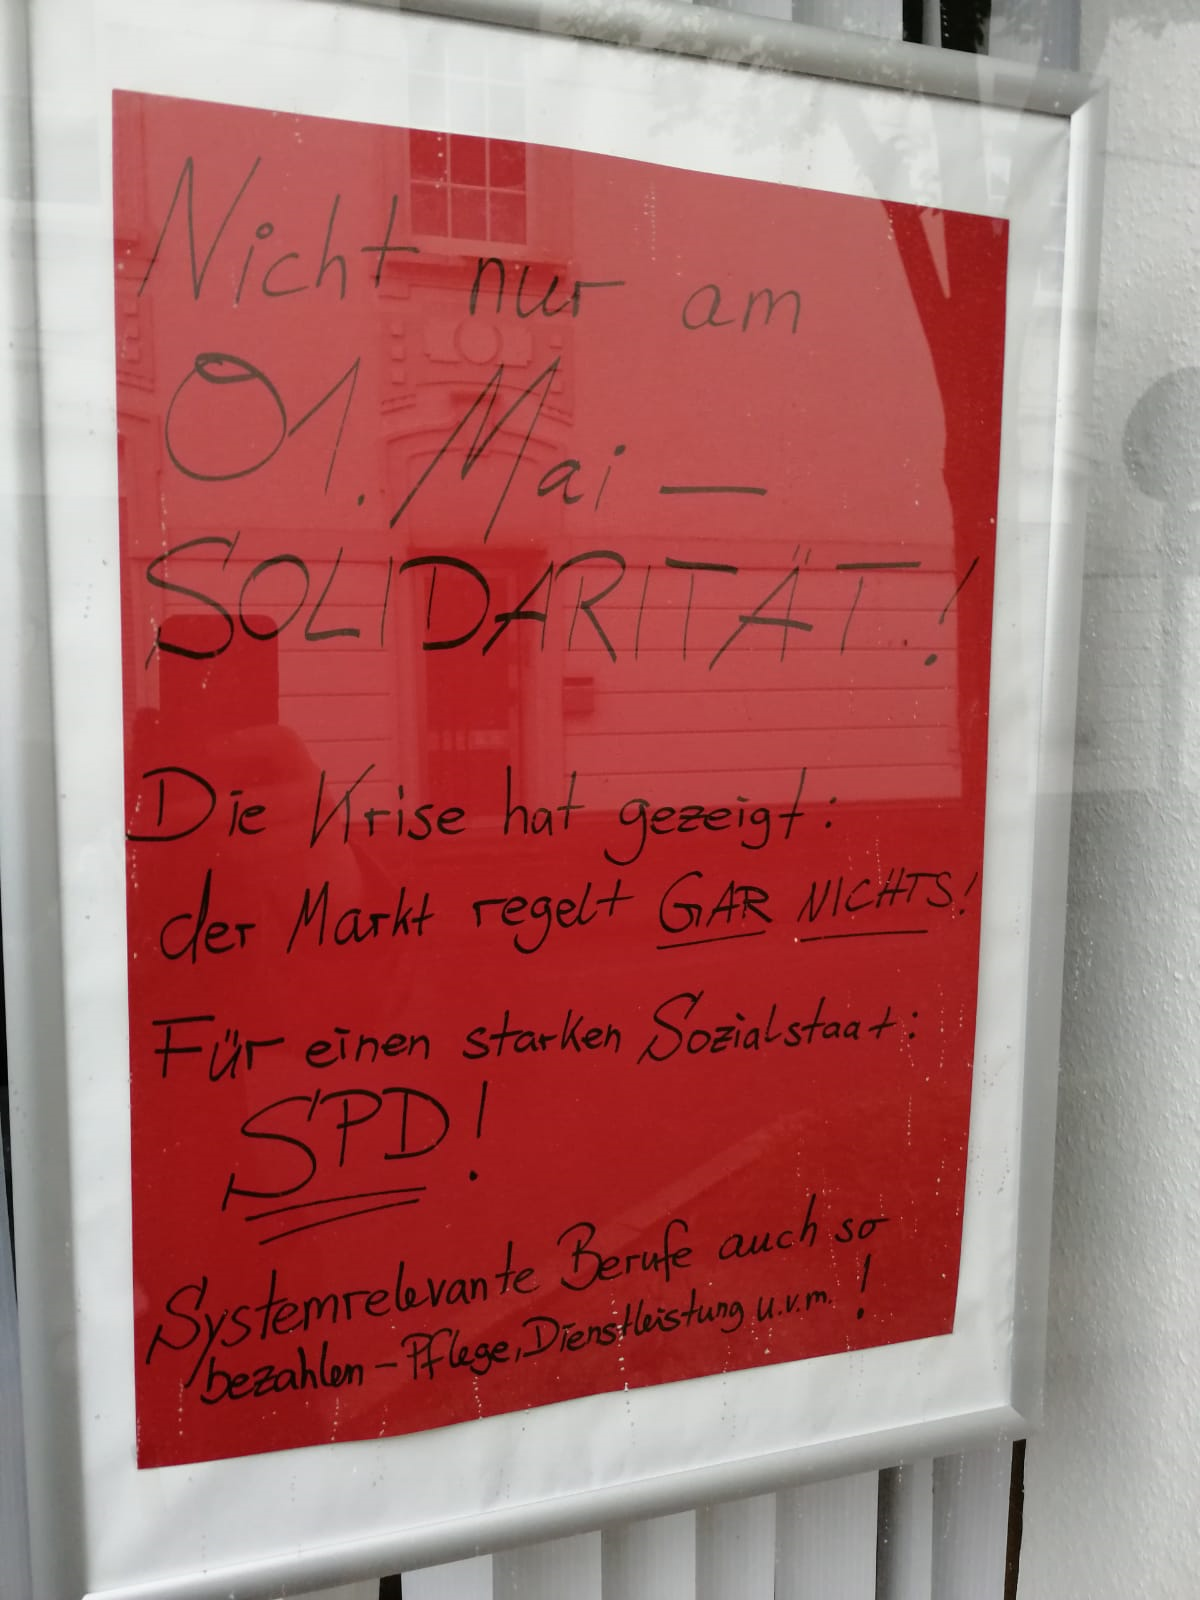 Nicht nur am
01. Mai —
SOLIDARITÄT!
Die Krise hat gezeigt:
der Markt regelt GAR NICHTS!
Für einen starken Sozialstaat:
SPD!
Systemrelevante Berufe auch so
bezahlen – Pflege, Dienstleistung u.v.m. !